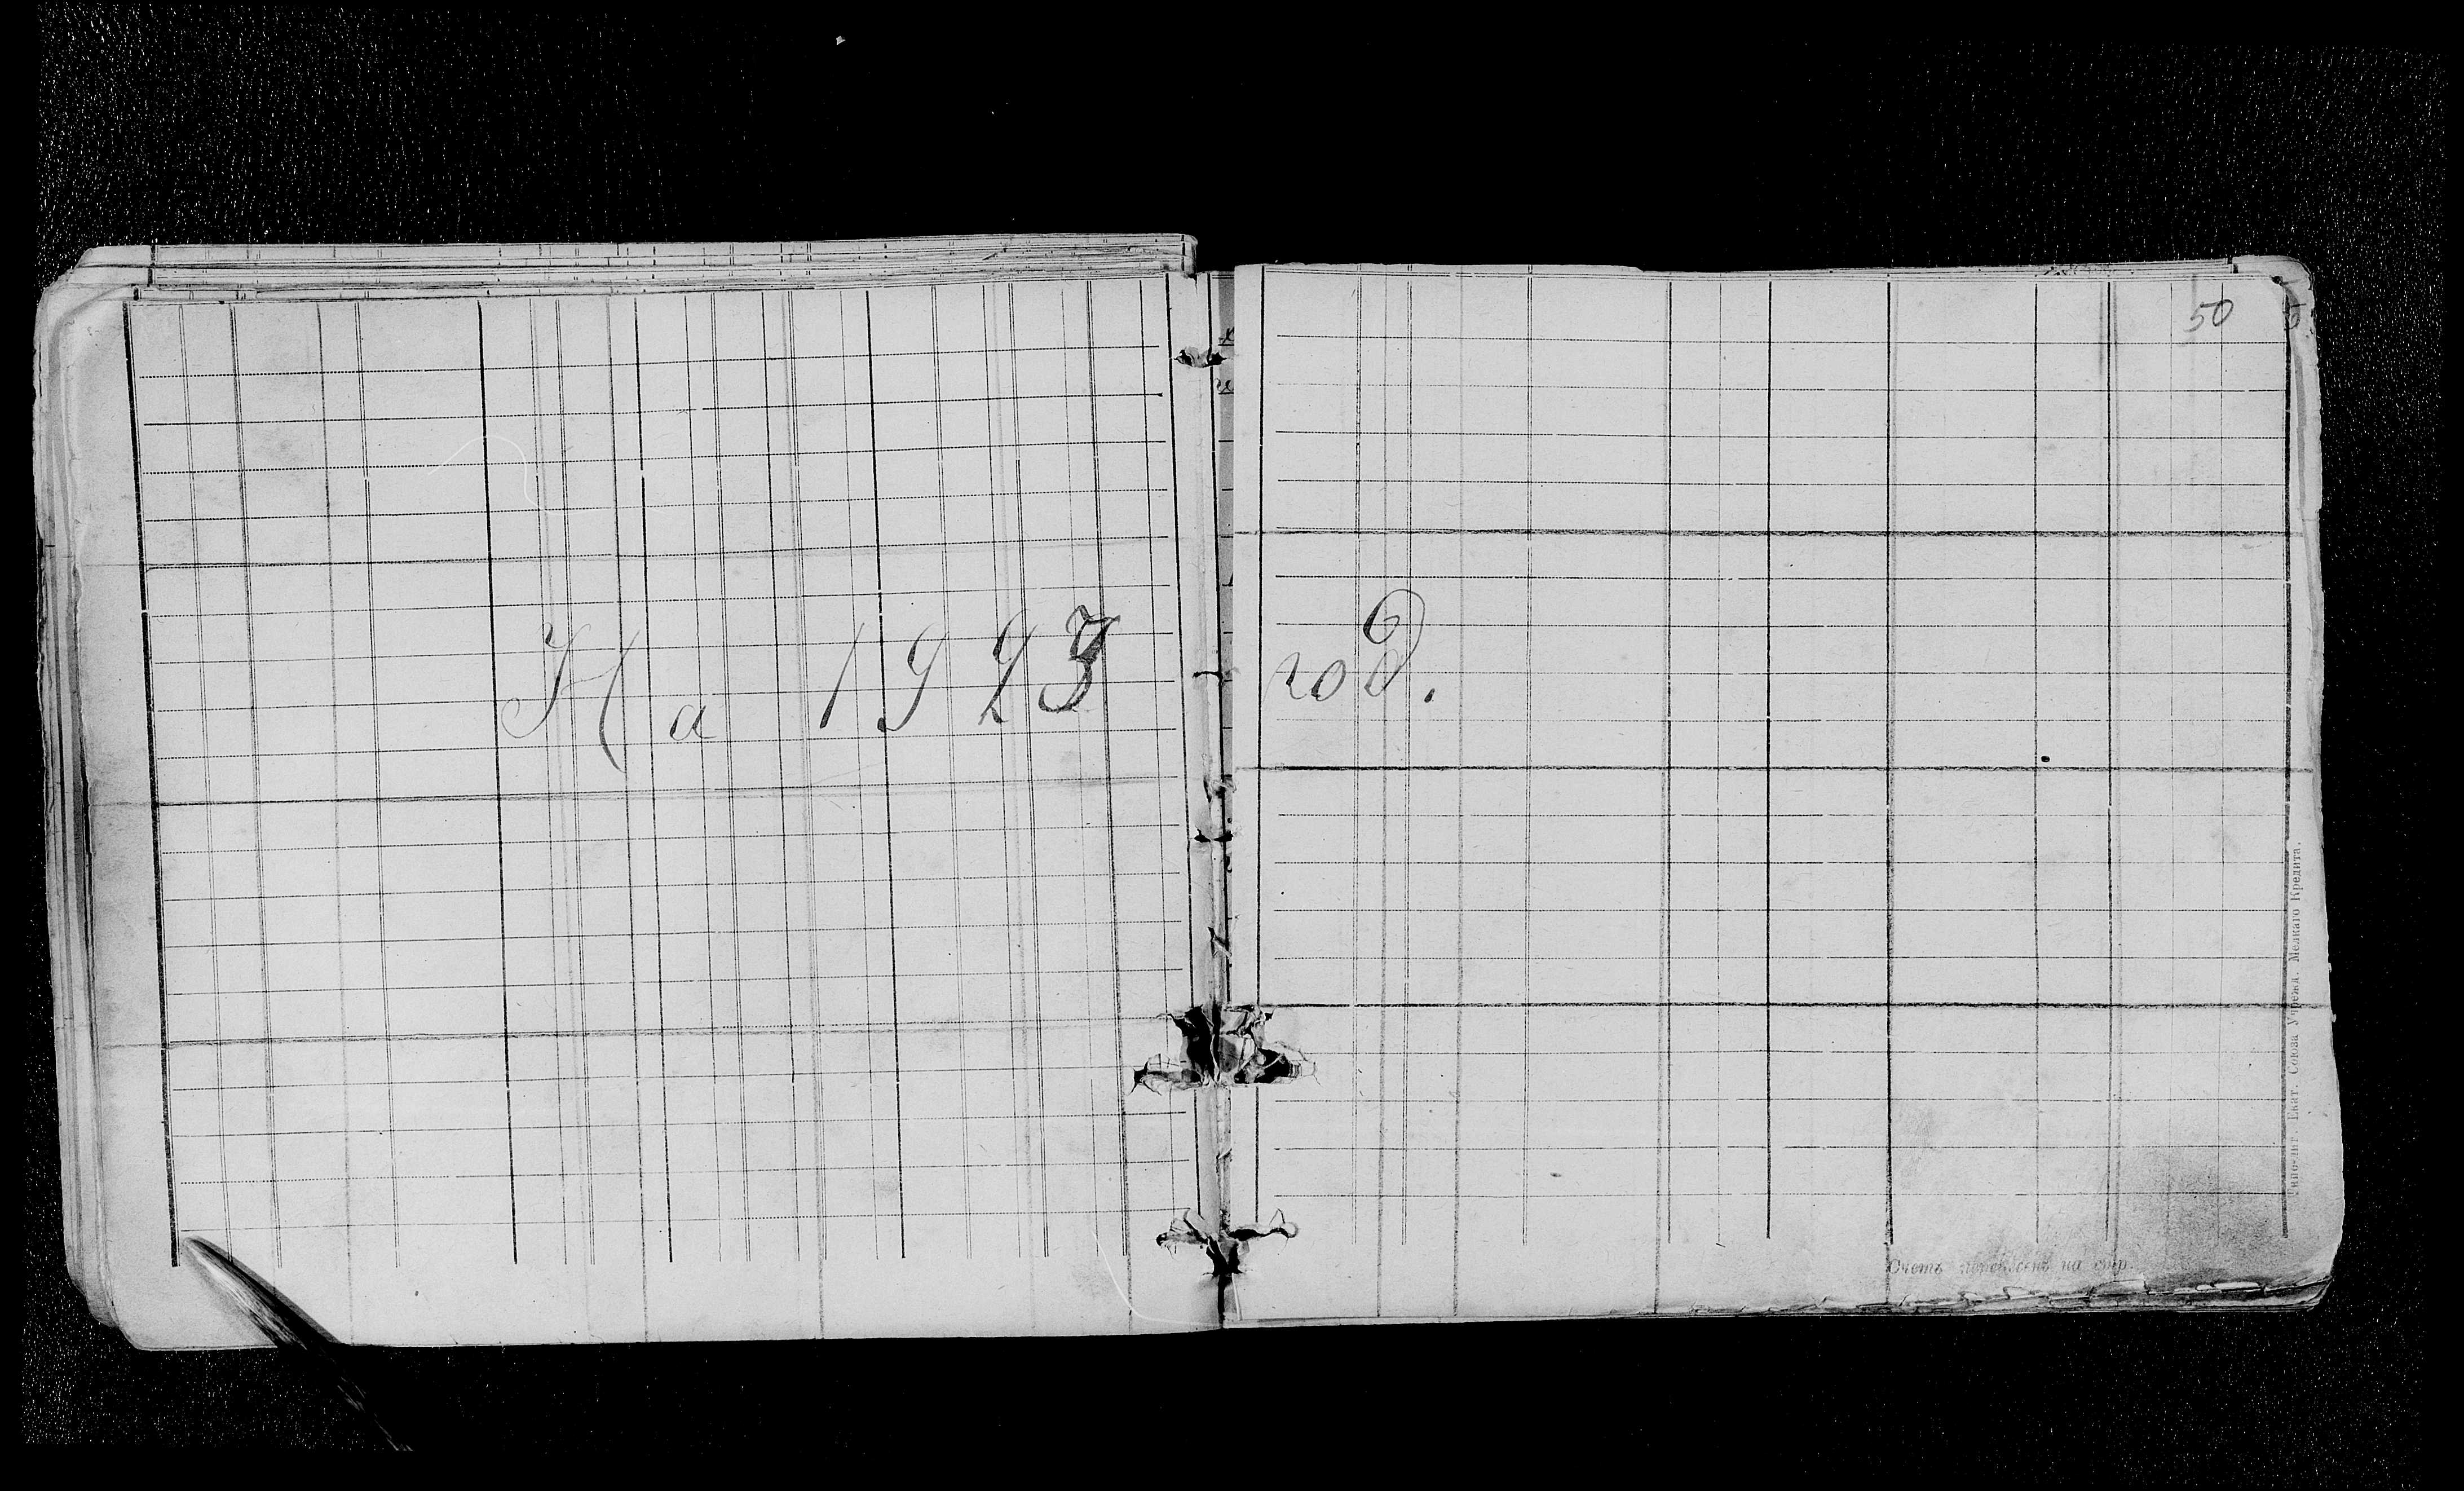 50
На 1923 год.
Типо-лит. Екат. Союза Учрежд. Мелкаго Кредита.
Счетъ перенесенъ на стр.